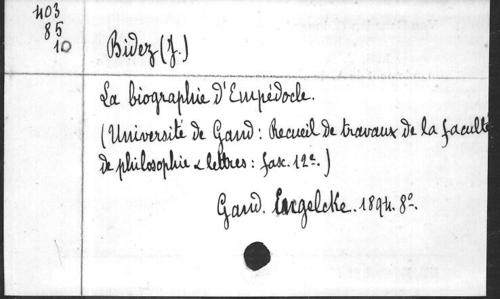 403
85
10
Bidez (J.)
La biographie d'Empédocle.
(Université de Gand: Recueil de travaux de la faculté
de philosophie & lettres: fasc. 12e.)
Gand. Engelcke. 1894. 8o.